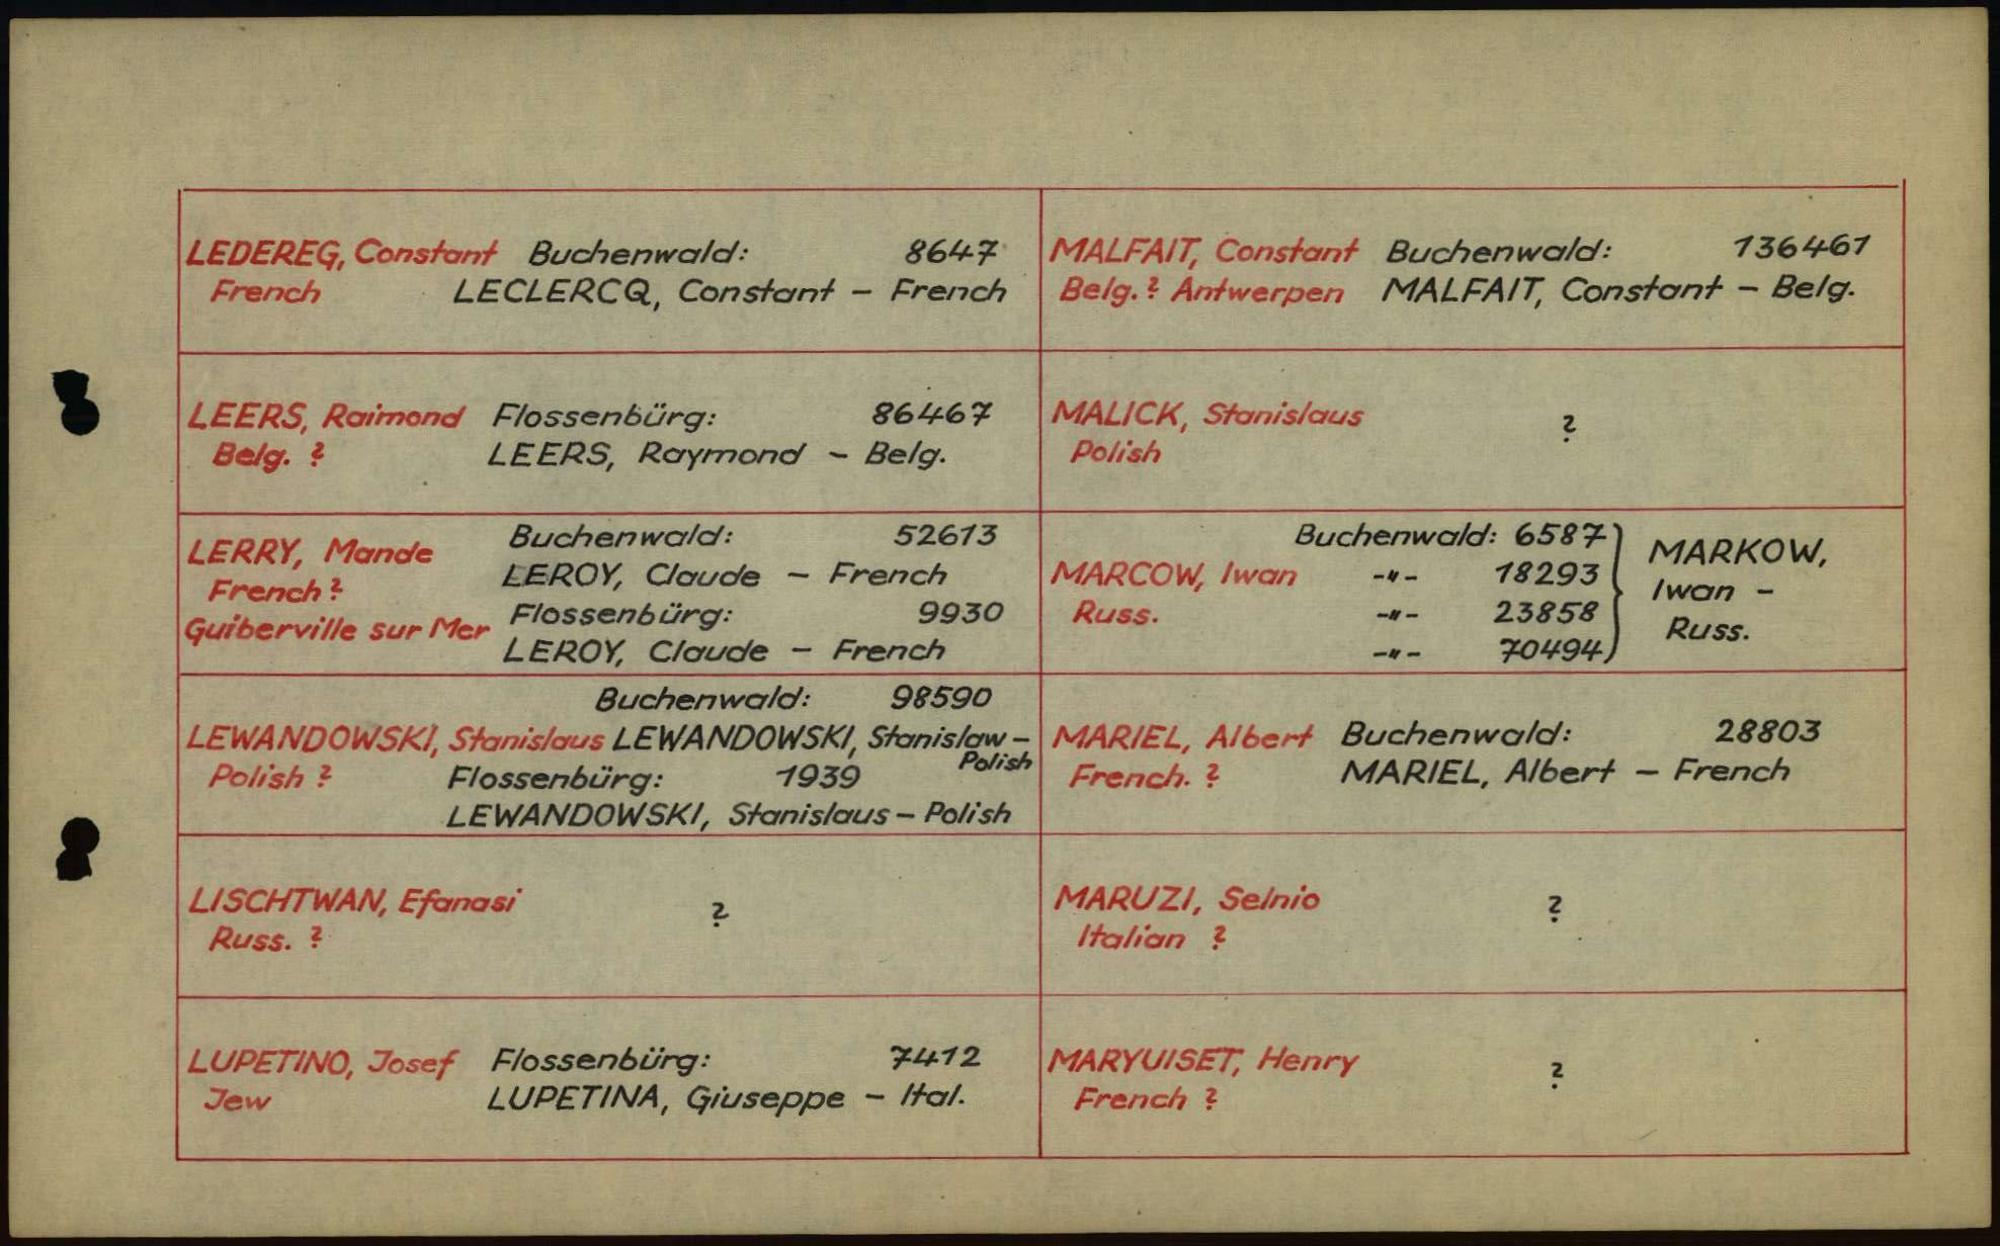 LEDEREG, Constant Buchenwald: 8647
French LECLERCQ, Constant – French
LEERS, Raimond Flossenbürg: 86467
Belg. ? LEERS, Raymond – Belg.
Buchenwald: 52613
LERRY, Mande
LEROY, Claude – French
French ?
Flossenbürg: 9930
Guiberville sur Mer
LEROY, Claude – French
Buchenwald: 98590
LEWANDOWSKI, Stanislaus LEWANDOWSKI, Stanislaw –
Polish
Polish ? Flossenbürg: 1939
LEWANDOWSKI, Stanislaus – Polish
LISCHTWAN, Efanasi ?
Russ. ?
LUPETINO, Josef Flossenbürg: 7412
Jew LUPETINA, Giuseppe – Ital.
MALFAIT, Constant Buchenwald: 136461
Belg. ? Antwerpen MALFAIT, Constant – Belg.
MALICK, Stanislaus ?
Polish
Buchenwald: 6587 } MARKOW,
MARCOW, Iwan -"- 18293 Iwan –
Russ. -"- 23858 Russ.
-"- 70494
MARIEL, Albert Buchenwald: 28803
French. ? MARIEL, Albert – French
MARUZI, Selnio ?
Italian ?
MARYUISET, Henry ?
French ?